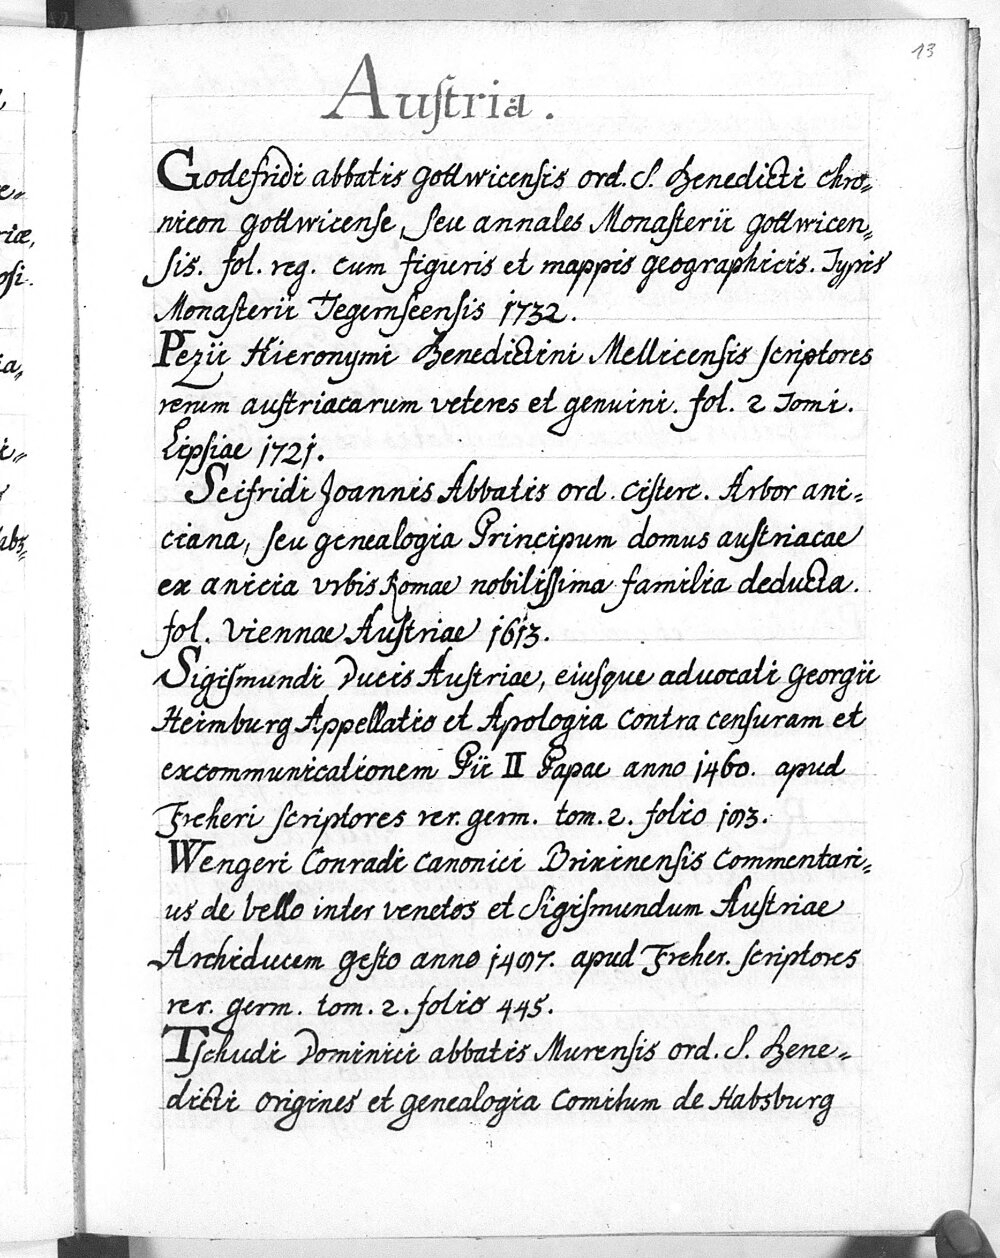 13
Austria.
Godefridi abbatis gottwicensis ord. S. Benedicti chro=
nicon gottwicense, seu annales Monasterii gottwicen=
sis. fol. reg. cum figuris et mappis geographicis. Typis
Monasterii Tegernseensis 1732.
Pezii Hieronymi Benedictini Mellicensis scriptores
rerum austriacarum veteres et genuini. fol. 2 Tomi.
Lipsiae 1721.
Seifridi Joannis Abbatis ord. cisterc. Arbor ani=
ciana, seu genealogia Principum domus austriacae
ex anicia urbis Romae nobilissima familia deducta.
fol. Viennae Austriae 1613.
Sigismundi Ducis Austriae, eiusque advocati Georgii
Heimburg Appellatio et Apologia contra censuram et
excommunicationem Pii II Papae anno 1460. apud
Freheri scriptores rer. germ. tom. 2. folio 193.
Wengeri Conradi canonici Brixinensis commentari=
us de bello inter venetos et Sigismundum Austriae
Archiducem gesto anno 1497. apud Freher. scriptores
rer. germ. tom. 2. folio 445.
Tschudi Dominici abbatis Murensis ord. S. Bene=
dicti origines et genealogia Comitum de Habsburg